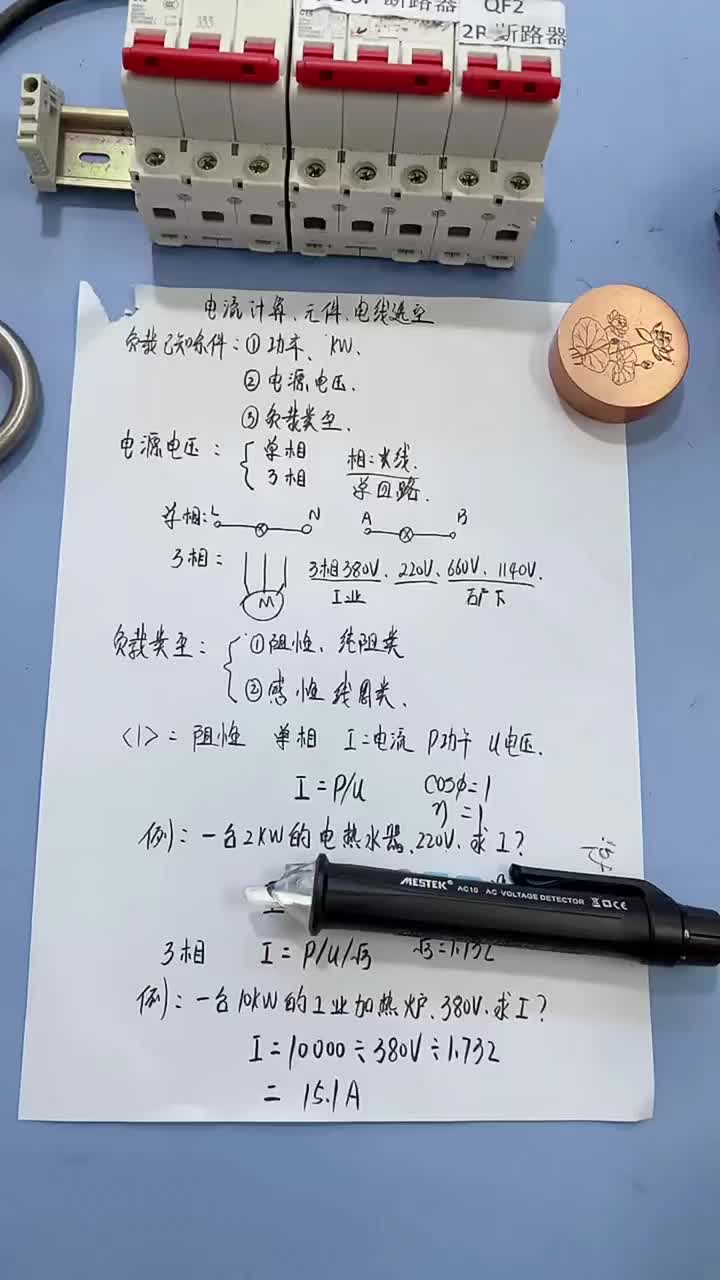 断路器
QF2
2P 断路器
电流计算、元件、电线选型
负载已知条件：①功率、KW、
②电源电压.
③负载类型.
电源电压： 单相 相：火线.
3相 单回路.
单相： L N A B
3相： M 3相380V、220V、660V、1140V.
工业 矿下
负载类型： ①阻性、纯阻类
②感性 线圈类、
<1>= 阻性 单相 I=电流 P功率 U电压.
I=P/U cosφ=1
η=1
例)：一台2KW的电热水器、220V、求I？
MESTEK® AC10 AC VOLTAGE DETECTOR CE
3相 I=P/U/√3 √3=1.732
例)：一台10KW的工业加热炉、380V、求I？
I=10000÷380V÷1.732
= 15.1A